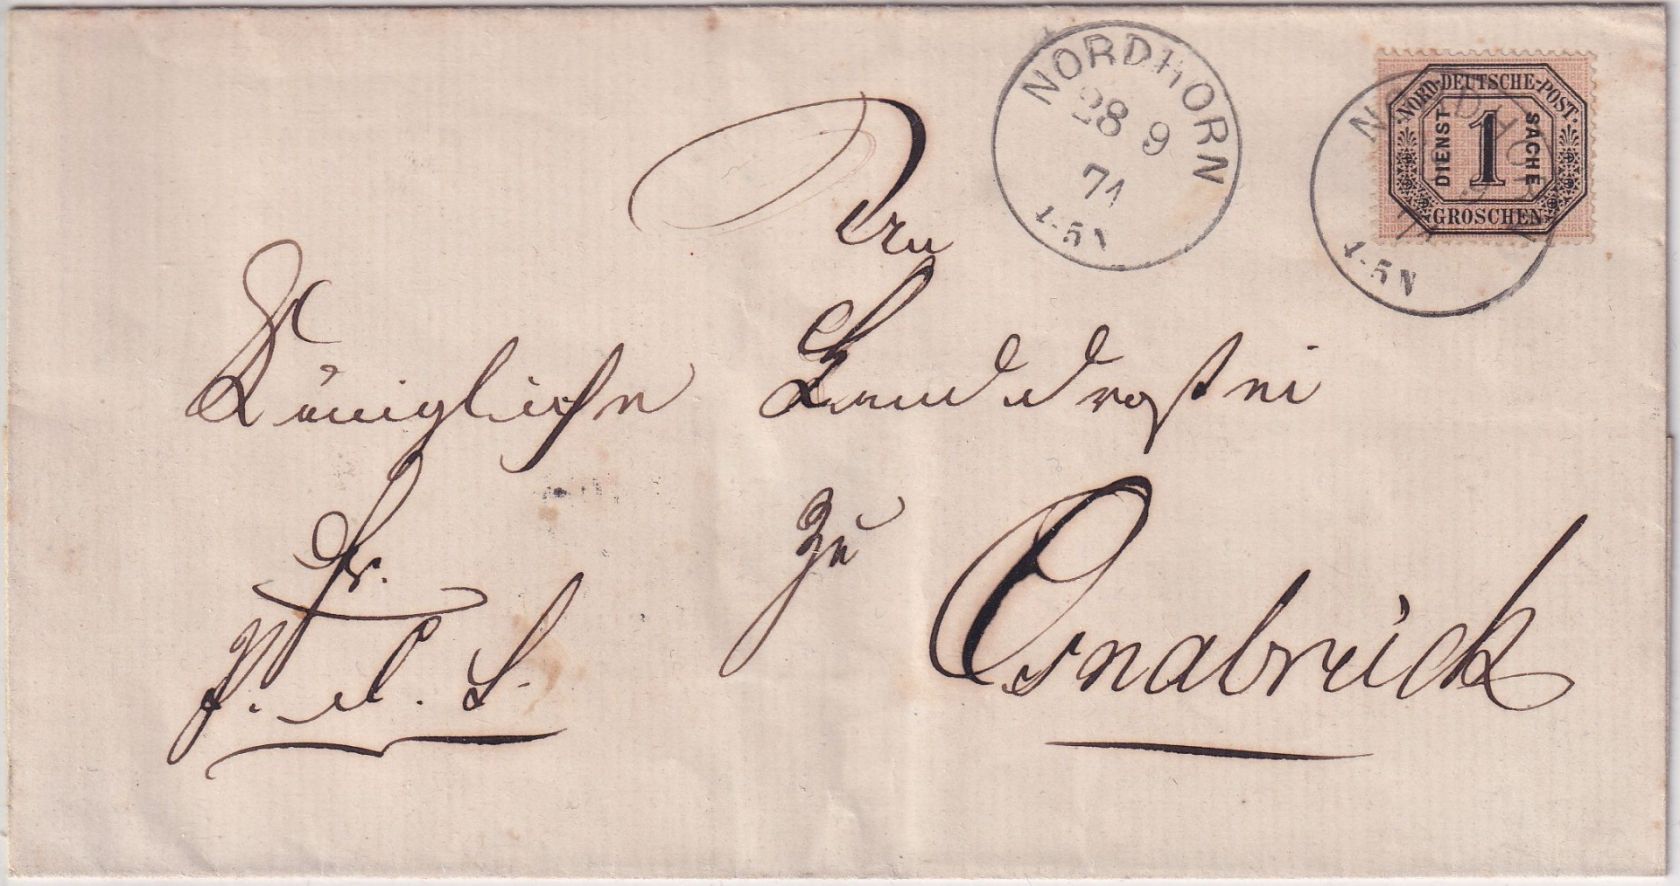 NORDHORN
28 9
71
4-5N
NORD-DEUTSCHE-POST
DIENST 1 SACHE
GROSCHEN
NORDHORN
4-5N
An
Königliche Landdrostei
zu
Osnabrück
Fr.